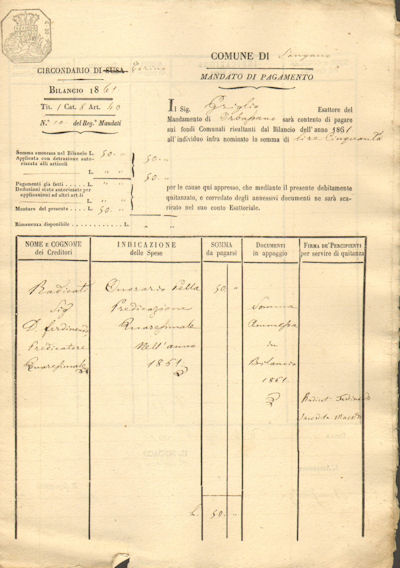 CIRCONDARIO DI SUSA Torino
BILANCIO 1861
TIT. 1 CAT. 8 ART. 40
N.° 10 del Reg.° Mandati
Somma ammessa nel Bilancio L. 50 " "
Applicata con detrazione autorizzata alli articoli
L. " "
50 " "
50 "
Pagamenti già fatti L. " "
Deduzioni state autorizzate per applicazioni ad altri art.li
Montare del presente L. 50 " "
Rimanenza disponibile L. " "
COMUNE DI Sangano
MANDATO DI PAGAMENTO
Il Sig. Griglio Esattore del
Mandamento di Orbassano sarà contento di pagare
sui fondi Comunali risultanti dal Bilancio dell'anno 1861
all'individuo infra nominato la somma di lire Cinquanta
per le cause qui appresso, che mediante il presente debitamente
quitanzato, e corredato degli annessivi documenti ne sarà scaricato nel suo conto Esattoriale.
NOME E COGNOME dei Creditori
INDICAZIONE delle Spese
SOMMA da pagarsi
DOCUMENTI in appoggio
FIRMA DE' PERCIPIENTI per servire di quitanza
Radicati
Sig
D. Ferdinando
Predicatore
Quaresimale
Onorario della
Predicazione
Quaresimale
Nell'anno
1861
50 "
Somma
Ammessa
in
Bilancio
1861
Radicati Ferdinando
L. 50 "